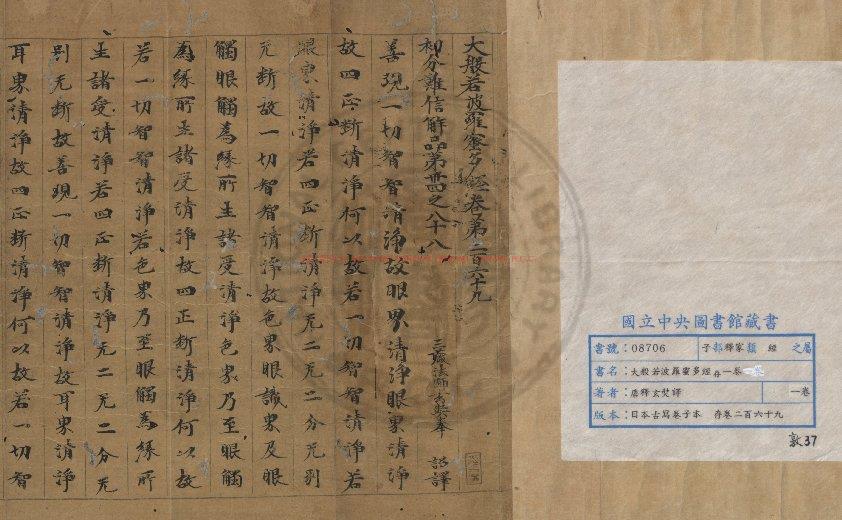 大般若波羅蜜多經卷第二百六十九
初分難信解品第卅四之八十八
三藏法師玄奘奉 詔譯
善現一切智智清淨故眼界清淨眼界清淨
故四正斷清淨何以故若一切智智清淨若
眼界清淨若四正斷清淨无二无二分无別
无斷故一切智智清淨故色界眼識界及眼
觸眼觸為緣所生諸受清淨色界乃至眼觸
為緣所生諸受清淨故四正斷清淨何以故
若一切智智清淨若色界乃至眼觸為緣所
生諸受清淨若四正斷清淨无二无二分无
別无斷故善現一切智智清淨故耳界清淨
耳界清淨故四正斷清淨何以故若一切智
國立中央圖書館藏書
書號：08706 子部釋家類 經 之屬
書名：大般若波羅蜜多經存一卷
著者：唐釋玄奘譯 一卷
版本：日本古寫卷子本 存卷二百六十九
敦37